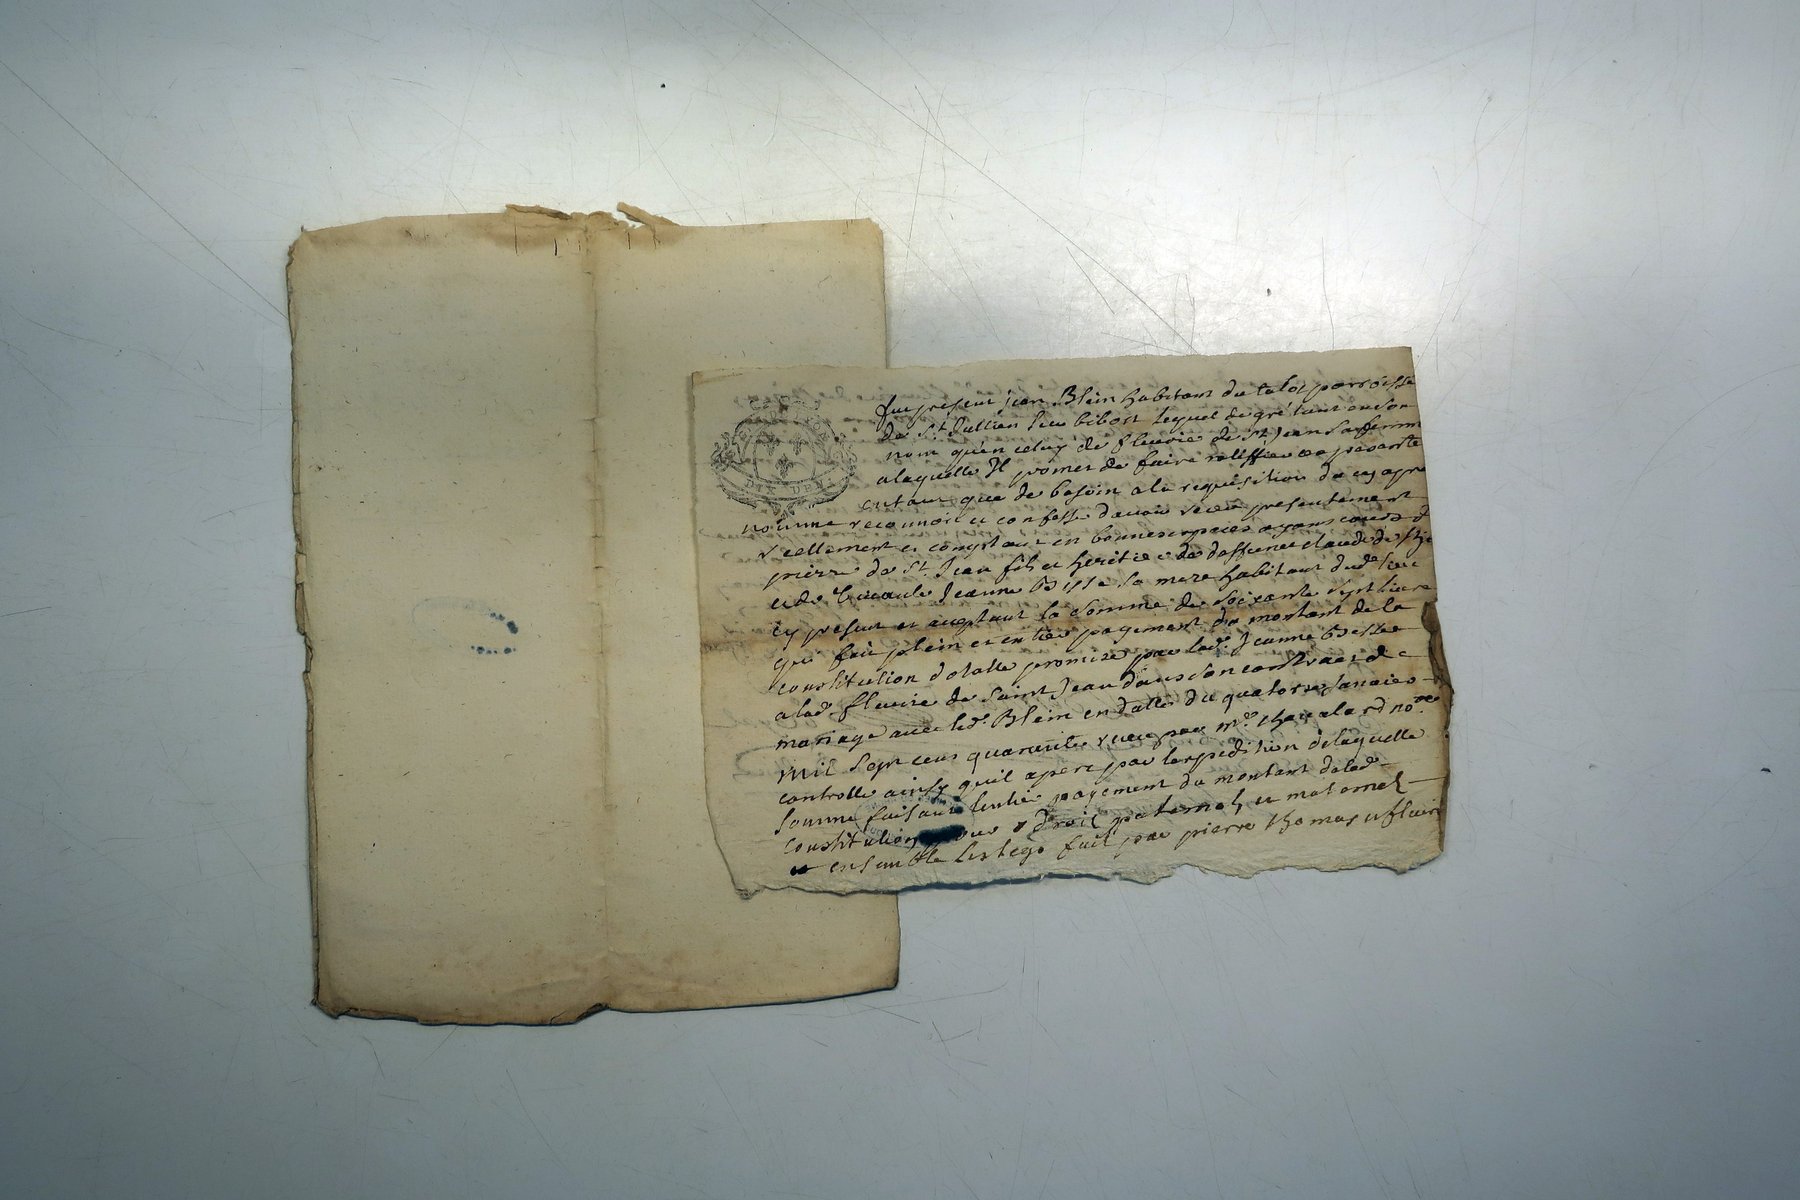 fut present jean Blein habitant du lalot parroisse
de St Jullien sur bibost lequel de gré tant en son
nom qu'en celuy de fleurie de St Jean sa femme
a laquelle Il promet de faire ratiffier ces presantes
entant que de besoin a la requisition du cy apres
nommé reconnoit et confesse d'avoir receu presentement
reellement et comptant en bonnes especes ayant cours de
pierre de St Jean fils et heritier de deffunct claude de St Jean
et de Jeanne Besse sa mere habitant dud. lieu
cy present et aceptant la somme de soixante sept livres
qui fait plein et entier payement du montant de la
constitution dotalle promise par lad. Jeanne Besse
a lad. fleurie de Saint Jean dans son contract de
mariage avec led. Blein en datte du quatorze Janvier
mil sept cens quarante receu par Me. no.re
controllé ainsy quil apert par lexpedition de laquelle
somme faisant lentier payement du montant de lad.
constitution pour droit paternels et maternels
et ensemble les legs fait par pierre thomas
DIE DEN